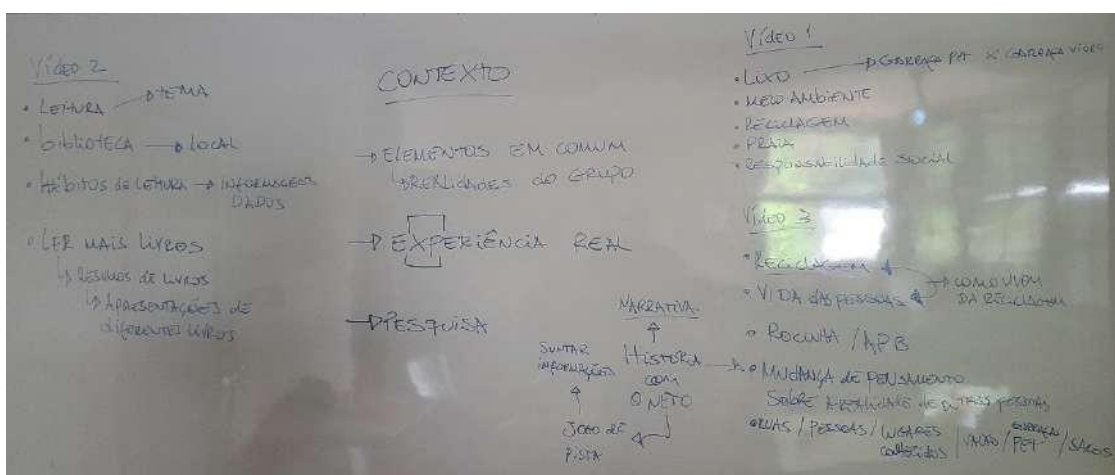 Vídeo 2
• LEITURA → TEMA
• biblioTECA → local
• Hábitos de LEITURA → INFORMAÇÕES
DADOS
• LER MAIS LIVROS
↳ RESUMOS de LIVROS
↳ APRESENTAÇÕES de
diferentes LIVROS
CONTEXTO
→ ELEMENTOS EM COMUM
↳ REALIDADES do GRUPO
→ EXPERIÊNCIA REAL
→ PESQUISA
NARRATIVA
HISTÓRIA
COM
O NETO
JUNTAR
INFORMAÇÕES
JOGO DE
PISTA
Vídeo 1
• LIXO → GARRAFA PET X GARRAFA VIDRO
• MEIO AMBIENTE
• RECICLAGEM
• PRAIA
• RESPONSABILIDADE SOCIAL
Vídeo 3
• RECICLAGEM
• VIDA DAS PESSOAS
→ COMO VIVEM
DA RECICLAGEM
• ROCINHA /
• MUDANÇA de PENSAMENTO
SOBRE A REALIDADE de PESSOAS
• RUAS / PESSOAS / LUGARES
/ PET / SACOS